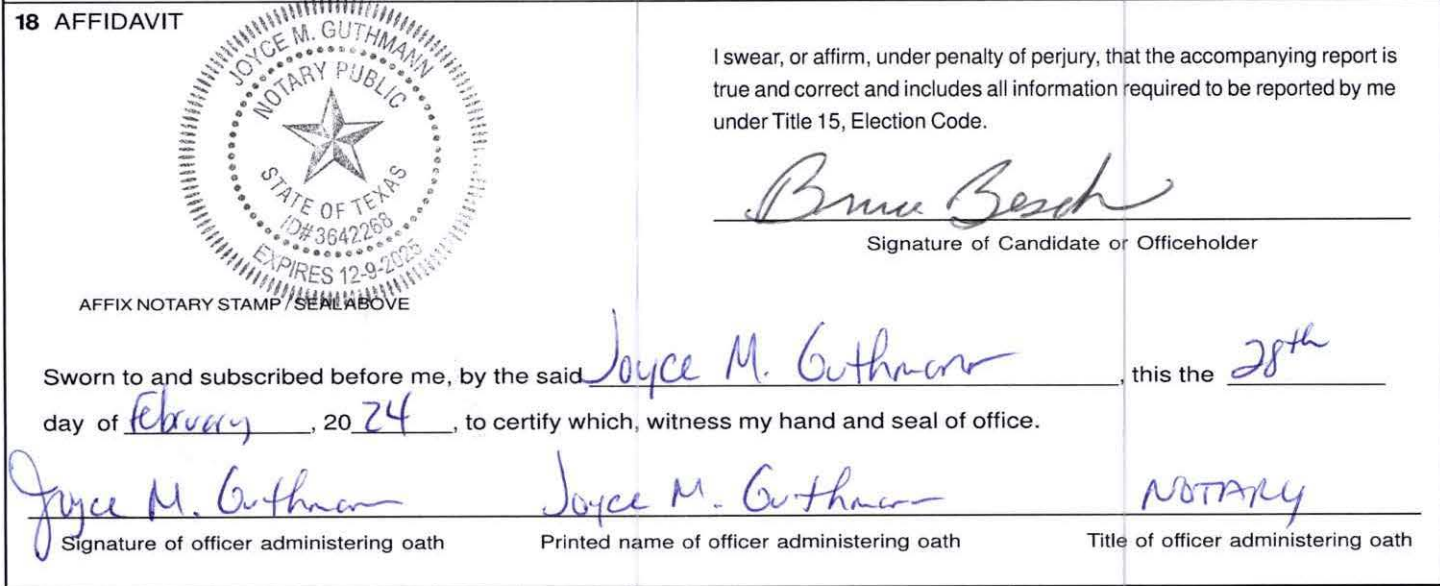 18 AFFIDAVIT
JOYCE M. GUTHMANN
NOTARY PUBLIC
STATE OF TEXAS
ID#3642268
EXPIRES 12-9-2025
AFFIX NOTARY STAMP / SEAL ABOVE
I swear, or affirm, under penalty of perjury, that the accompanying report is
true and correct and includes all information required to be reported by me
under Title 15, Election Code.
Bruce Besch
Signature of Candidate or Officeholder
Sworn to and subscribed before me, by the said Joyce M. Guthmann, this the 28th
day of february, 20 24, to certify which, witness my hand and seal of office.
Joyce M. Guthmann Joyce M. Guthmann NOTARY
Signature of officer administering oath Printed name of officer administering oath Title of officer administering oath